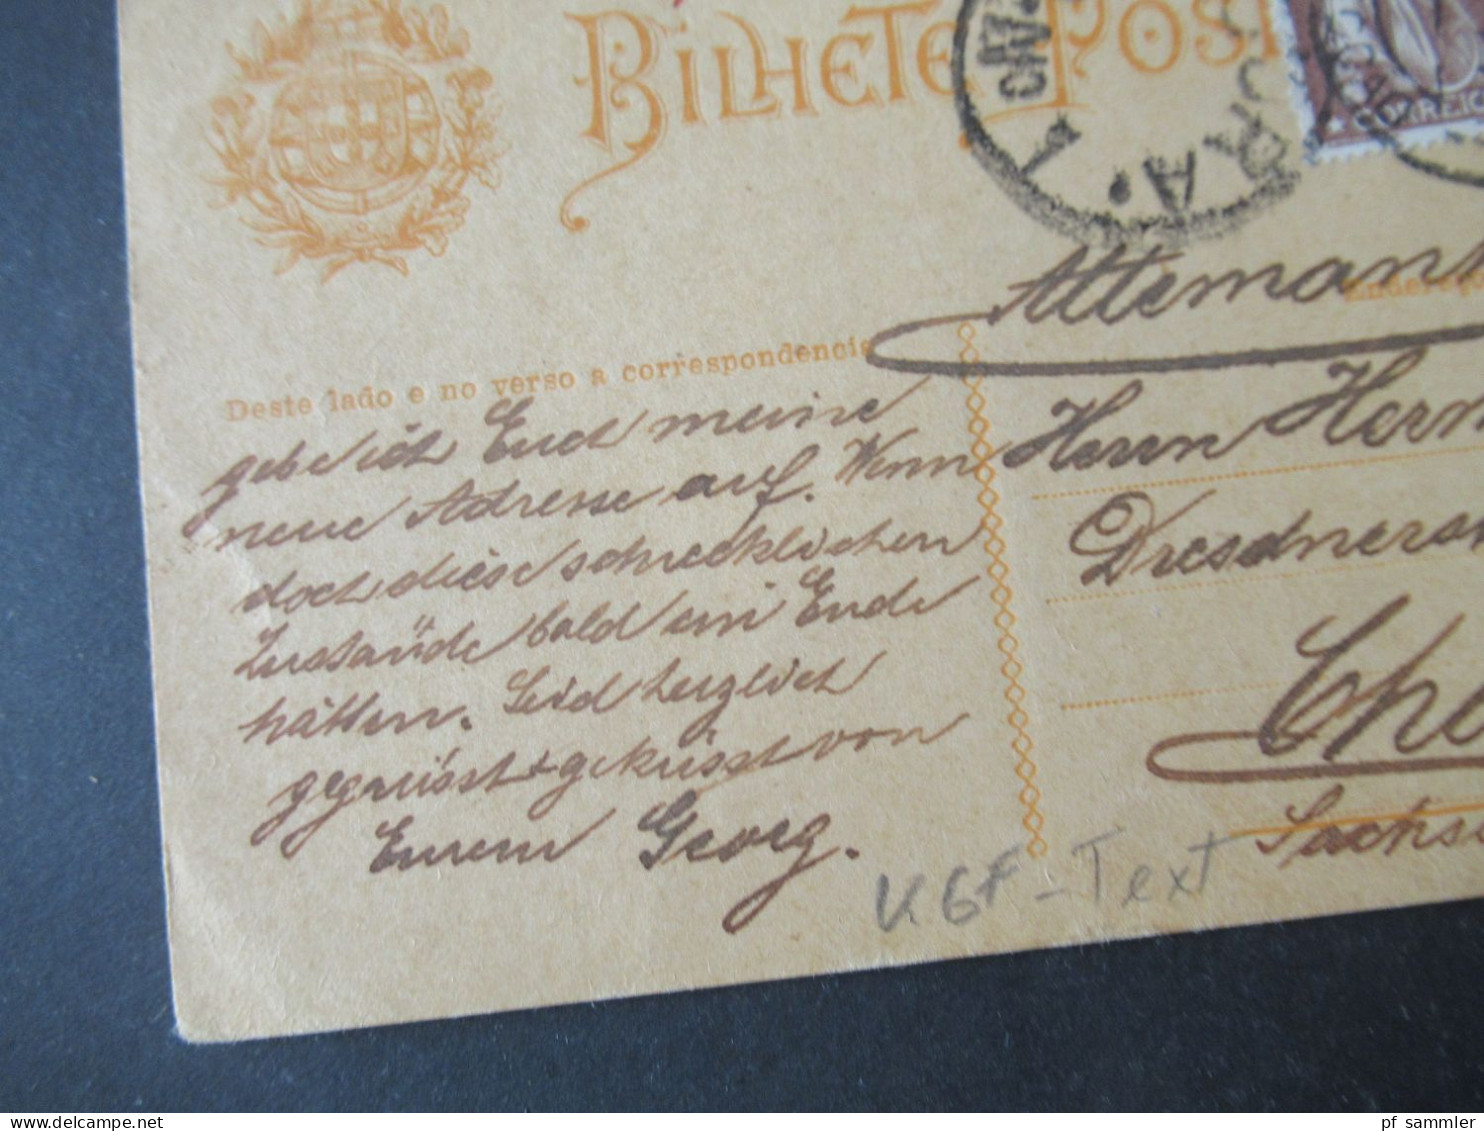 BILHETE POST
CORREIO
Allemanh
Deste lado e no verso a correspondencia
gebe ich Euch meine
neue Adresse auf. Wenn
doch diese schrecklichen
Zustände bald ein Ende
hätten. Seid herzlich
gegrüsst + geküsst von
Eurem Georg.
Herrn Herm
Dresdnerst
Che
Sachs
K.GF-Text
pf sammler